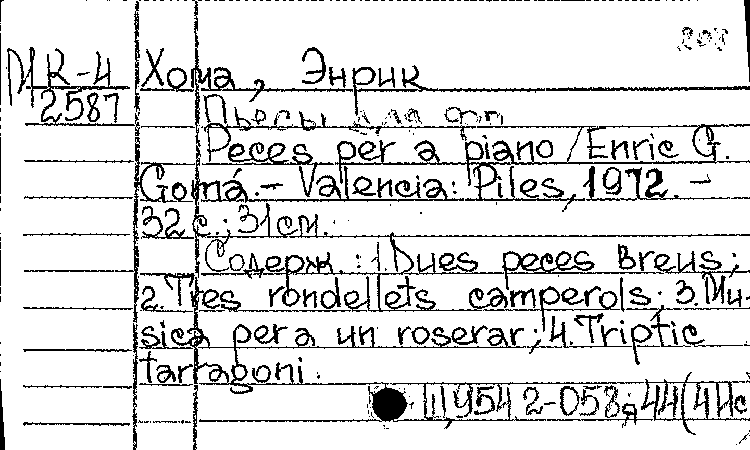 203
МК-4 Хома, Энрик
2587 Пьесы для фп
Peces per a piano / Enric G.
Gomá. – Valencia: Piles, 1972. –
32 с.; 31 см.
Содерж.: 1. Dues peces breus;
2. Tres rondellets camperols; 3. Mu-
sica per a un roserar; 4. Triptic
tarragoni.
Щ954.2-058я44(4Ис)